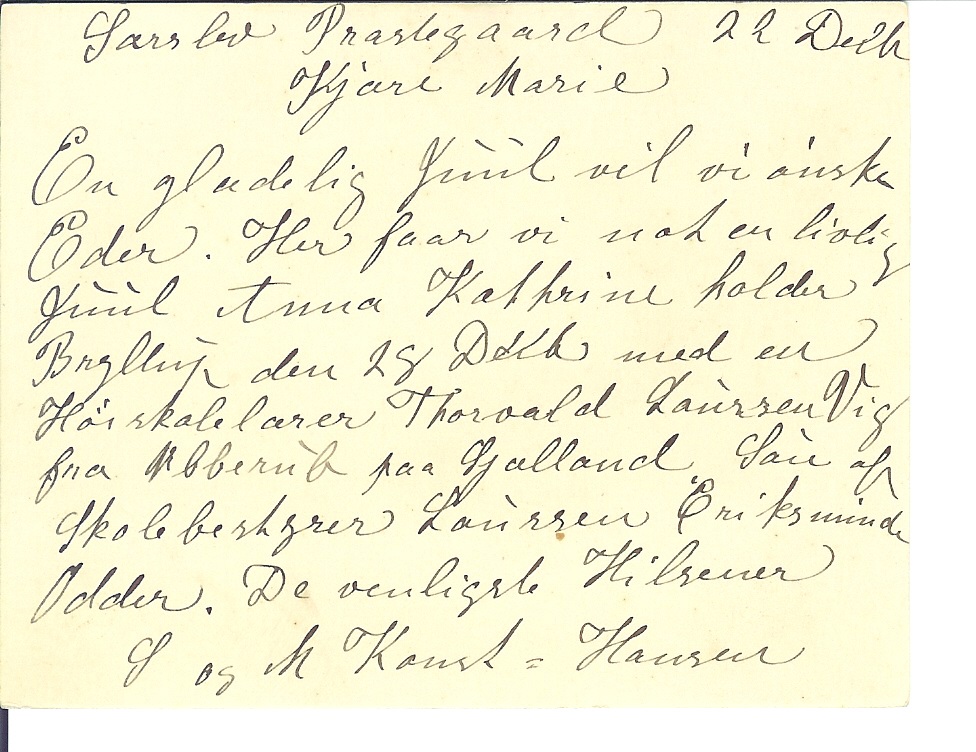 Særslev Præstegaard 22 Decb
Kjære Marie
En glædelig Juul vil vi ønske
Eder. Her faar vi nok en livlig
Juul Anna Kathrine holder
Bryllup den 28 Decb med en
Høiskolelærer Thorvald Laursen Vig
fra Ubberup paa Sjælland Søn af
Skolebestyrer Laursen Eriksminde
Odder. De venligste Hilsener
S og M Konst = Hansen